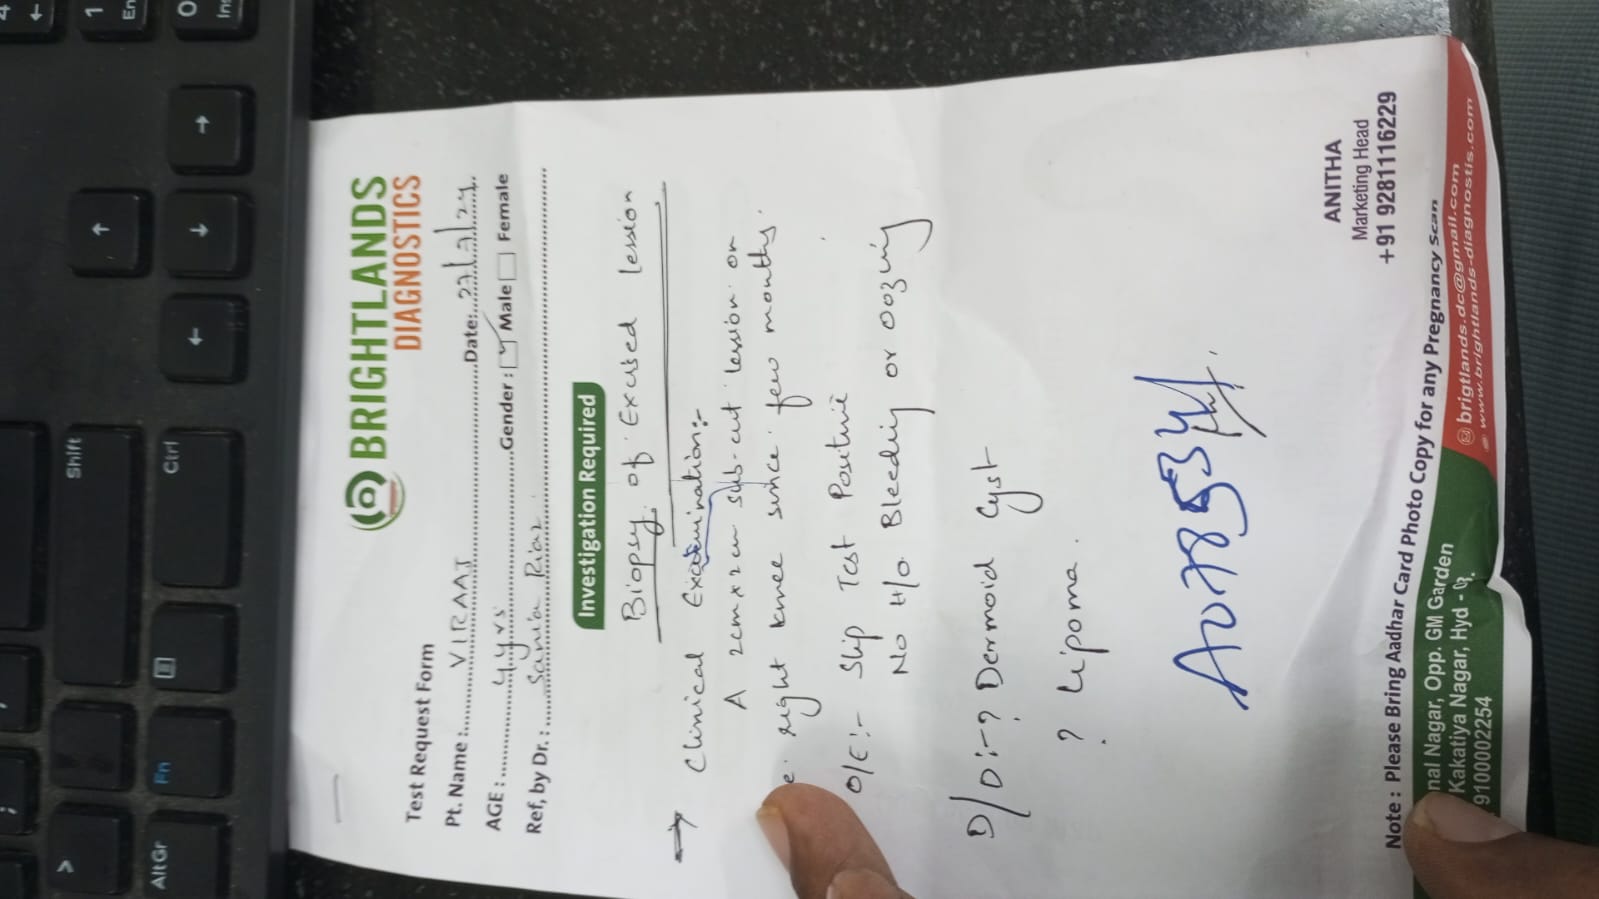 BRIGHTLANDS
DIAGNOSTICS
Test Request Form
Pt. Name :... VIRAAJ ...Date:... 27/2/24
AGE : ... 4yrs ...Gender : Male Female
Ref, by Dr. : ... Sania Riaz
Investigation Required
Biopsy of Excised lession
→ Clinical Examination:-
A 2cm x 2cm sub-cut lession on
right knee since few months.
O/E:- Slip Test Positive
No H/o Bleeding or oozing
D/D:-? Dermoid Cyst
? Lipoma.
ANITHA
Marketing Head
+91 9281116229
Note : Please Bring Aadhar Card Photo Copy for any Pregnancy Scan
nal Nagar, Opp. GM Garden
Kakatiya Nagar, Hyd -
9100002254
brigtlands.dc@gmail.com
www.brightlands-diagnostis.com
Shift
Ctrl
AltGr
Fn